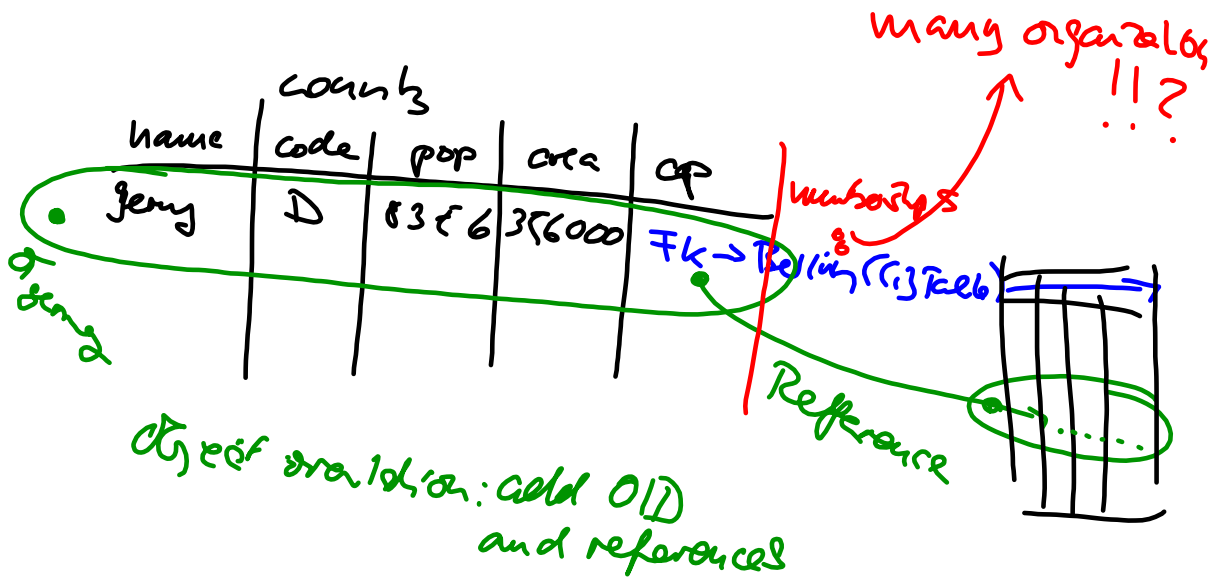 many organizations
!!?
country
name code pop area cap
memberships
Germany D 83E6 356000
FK → Berlin (City Table)
8
Germany
Reference
Object orientation: add OID
and references